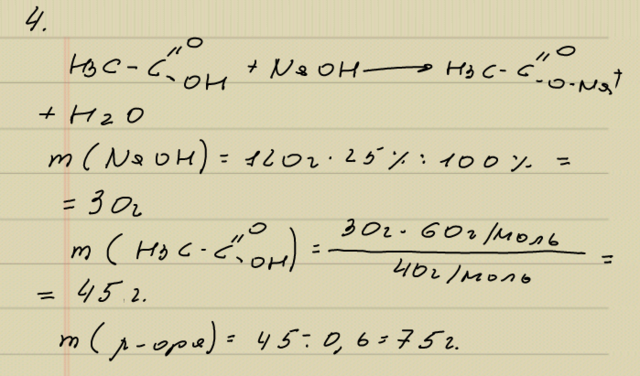 4.
H3C-C(=O)-OH + NaOH ⟶ H3C-C(=O)-O-Na+
+ H2O
m(NaOH) = 120г · 25% : 100% =
= 30г
m(H3C-C(=O)-OH) = (30г · 60г/моль)/(40г/моль) =
= 45 г.
m(р-ора) = 45 : 0,6 = 75г.